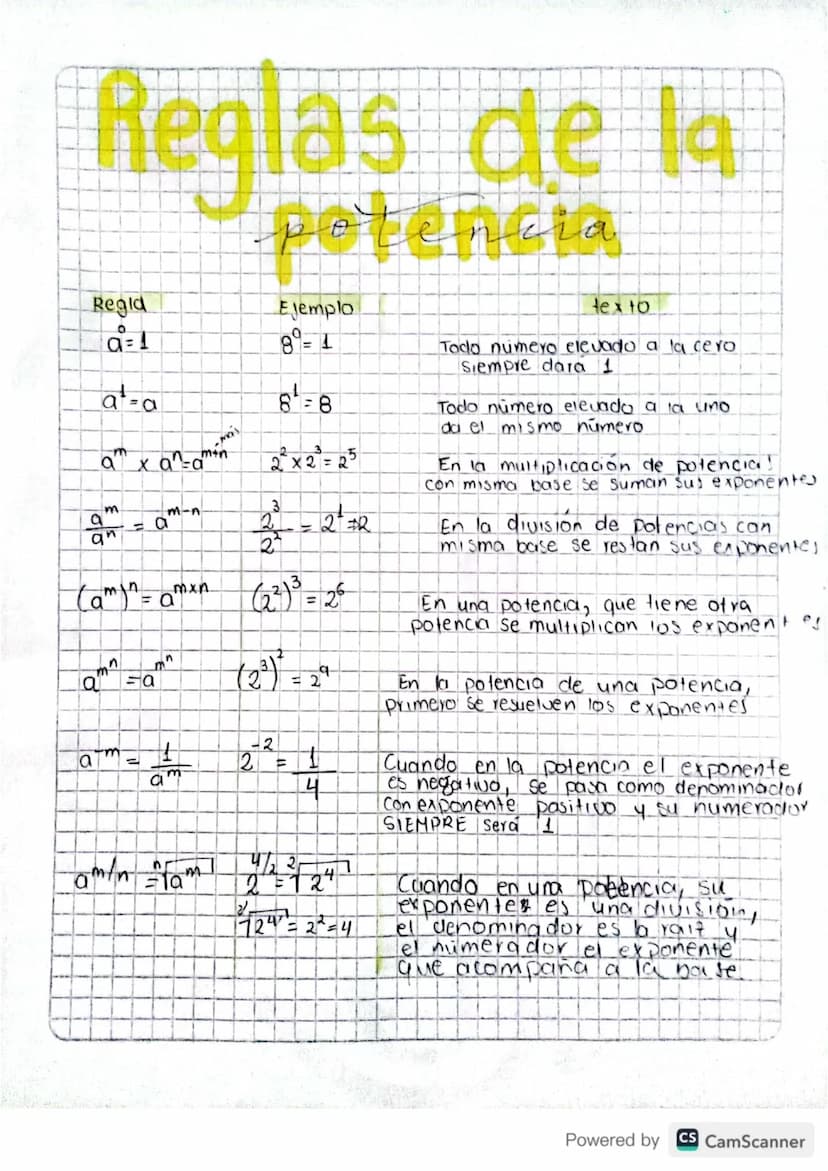 Reglas de la
potencia
Regla Ejemplo texto
a⁰=1 8⁰=1 Todo número elevado a la cero
siempre dará 1
a¹=a 8¹=8 Todo número elevado a la uno
da el mismo número
más
aᵐ x aⁿ=aᵐ⁺ⁿ 2² x 2³ = 2⁵ En la multiplicación de potencia!
con misma base se suman sus exponentes
aᵐ/aⁿ = aᵐ⁻ⁿ 2³/2² = 2¹=2 En la división de potencias con
misma base se restan sus exponentes
(aᵐ)ⁿ = aᵐˣⁿ (2²)³ = 2⁶ En una potencia, que tiene otra
potencia se multiplican los exponentes
a^m^n = a^m^n (2³)² = 2⁹ En la potencia de una potencia,
primero se resuelven los exponentes
a⁻ᵐ = 1/aᵐ 2⁻² = 1/4 Cuando en la potencia el exponente
es negativo, se pasa como denominador
con exponente positivo y su numerador
SIEMPRE será 1
a^m/n = ⁿ√aᵐ 2^4/2 = ²√2⁴ Cuando en una potencia, su
exponente es una división,
²√2⁴ = 2² = 4 el denominador es la raiz y
el númerador el exponente
que acompaña a la base.
Powered by CS CamScanner